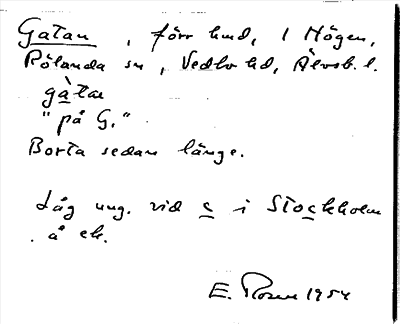 Gatan, förr hmd, i Högen,
Rölanda sn, Vedbo hd, Älvsb. l.
gàtan
"på G."
Borta sedan länge.
Låg ung. vid c i Stockholm
å ek.
E. Rosén 1954